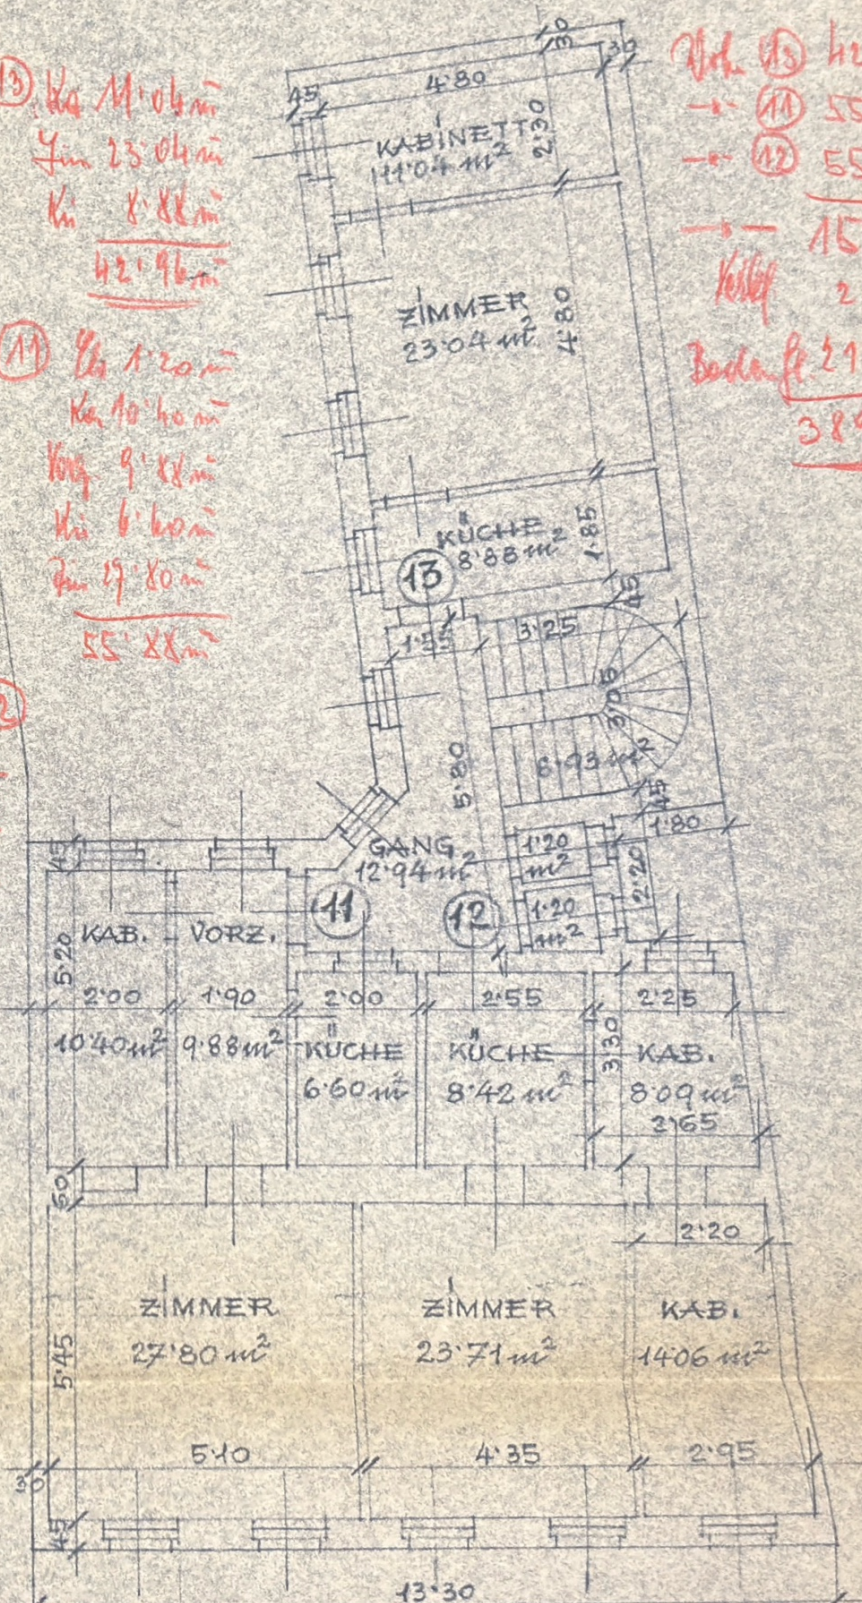 13
Ka 11'04 m²
Zim 23'04 m²
Kü 8'88 m²
42'96 m²
11
1'20 m²
Ka 10'40 m²
Vorz. 9'88 m²
Kü 6'60 m²
Zim 27'80 m²
55'88 m²
2
Woh. 13 42
11 55
12 55
15
2
Bodenfl. 21
389
30
30
45
4'80
KABINETT
11'04 m²
2'30
ZIMMER
23'04 m²
4'80
KÜCHE
8'88 m²
1'85
13
45
3'25
3'05
8'93 m²
5'80
45
1'80
GANG
12'94 m²
1'20
m²
2'20
1'20
m²
11
12
45
KAB.
VORZ.
5'20
2'00
1'90
2'00
2'55
2'25
10'40 m²
9'88 m²
KÜCHE
6'60 m²
KÜCHE
8'42 m²
3'30
KAB.
8'09 m²
3'65
60
2'20
ZIMMER
27'80 m²
ZIMMER
23'71 m²
KAB.
14'06 m²
5'45
5'10
4'35
2'95
30
45
13'30